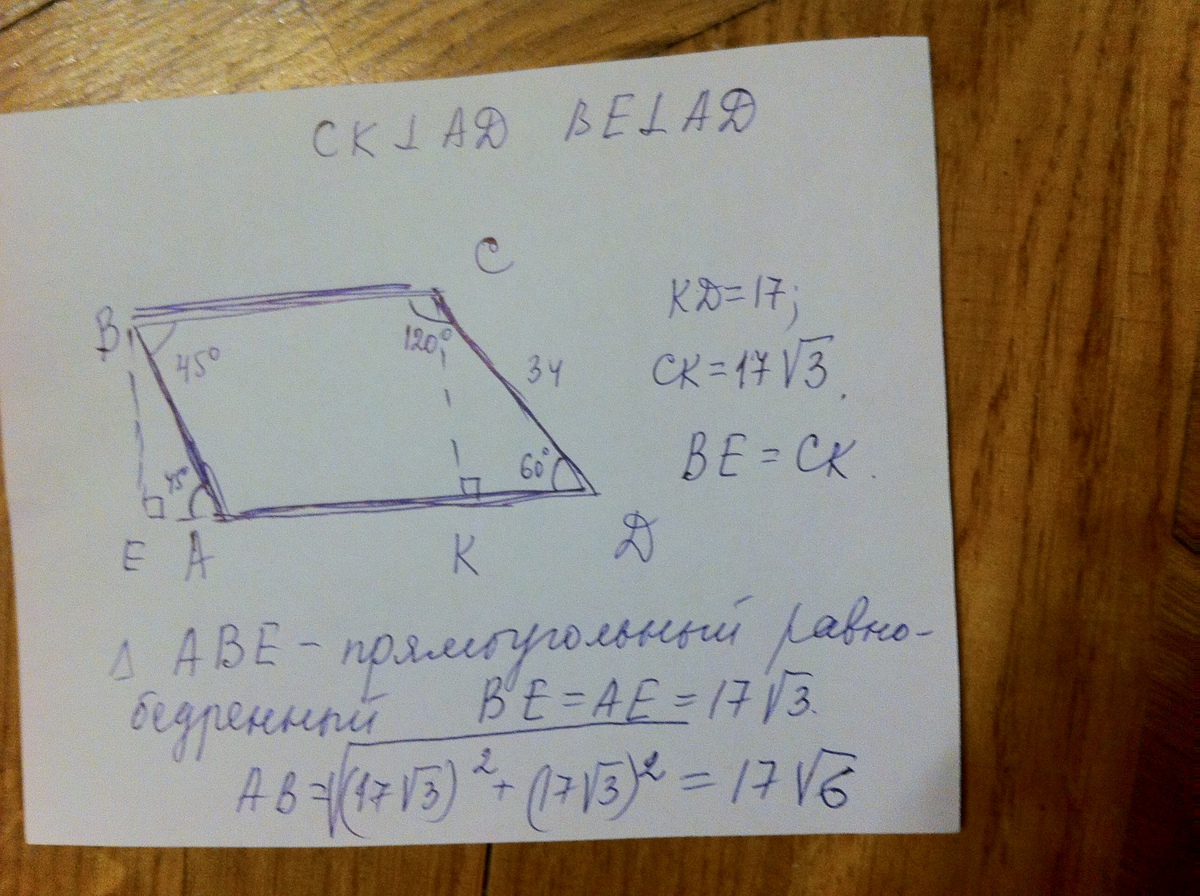 CK ⊥ AD BE ⊥ AD
C
B
45°
120°
34
45
60°
E A K D
KD = 17;
CK = 17√3.
BE = CK.
Δ ABE - прямоугольный равно-
бедренный BE = AE = 17√3.
AB = √((17√3)² + (17√3)²) = 17√6